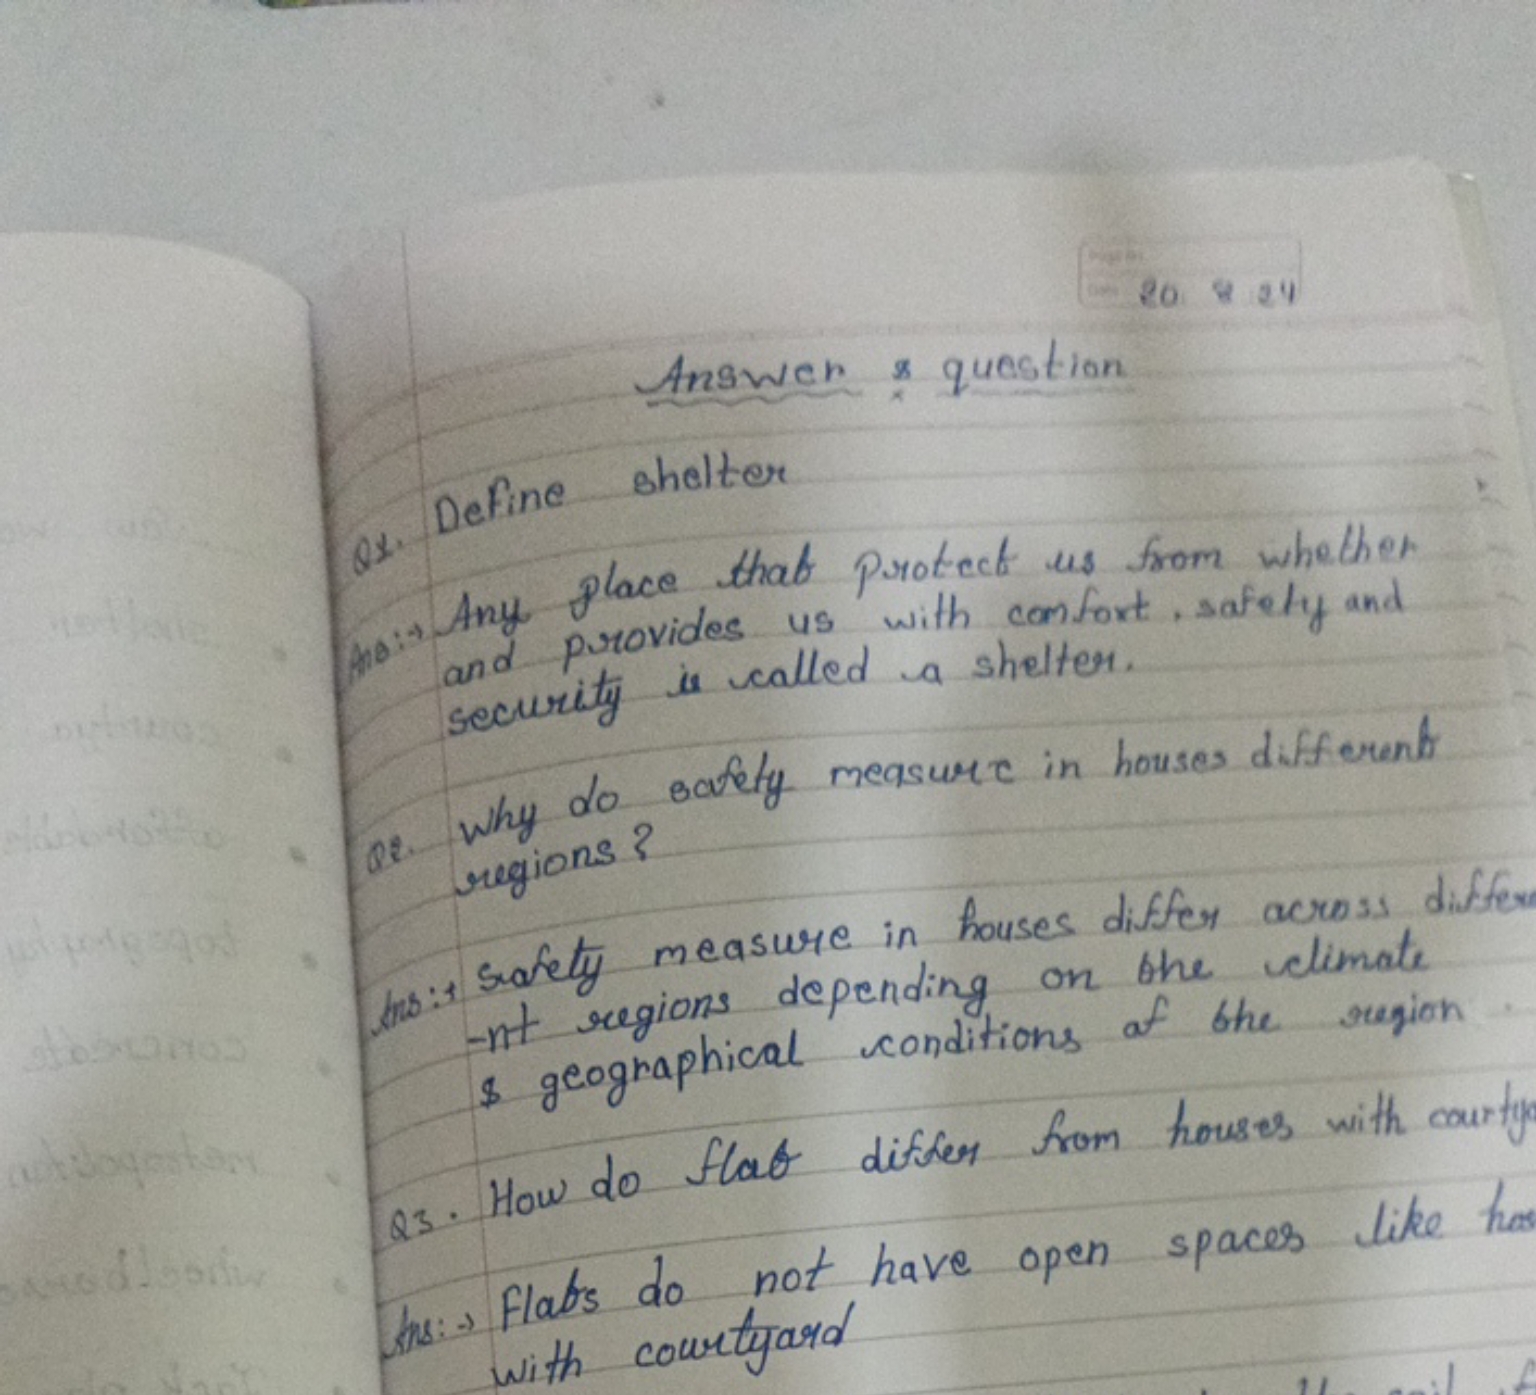 20 8 24
Answer & question
Q1. Define shelter
Ans:→ Any place that protect us from whether
and provides us with comfort, safety and
security is called a shelter.
Q2. Why do safety measure in houses different
regions?
Ans:→ Safety measure in houses differ across differe
-nt regions depending on the climate
& geographical conditions of the region.
Q3. How do flat differ from houses with courtya
Ans:→ Flats do not have open spaces like hos
with courtyard